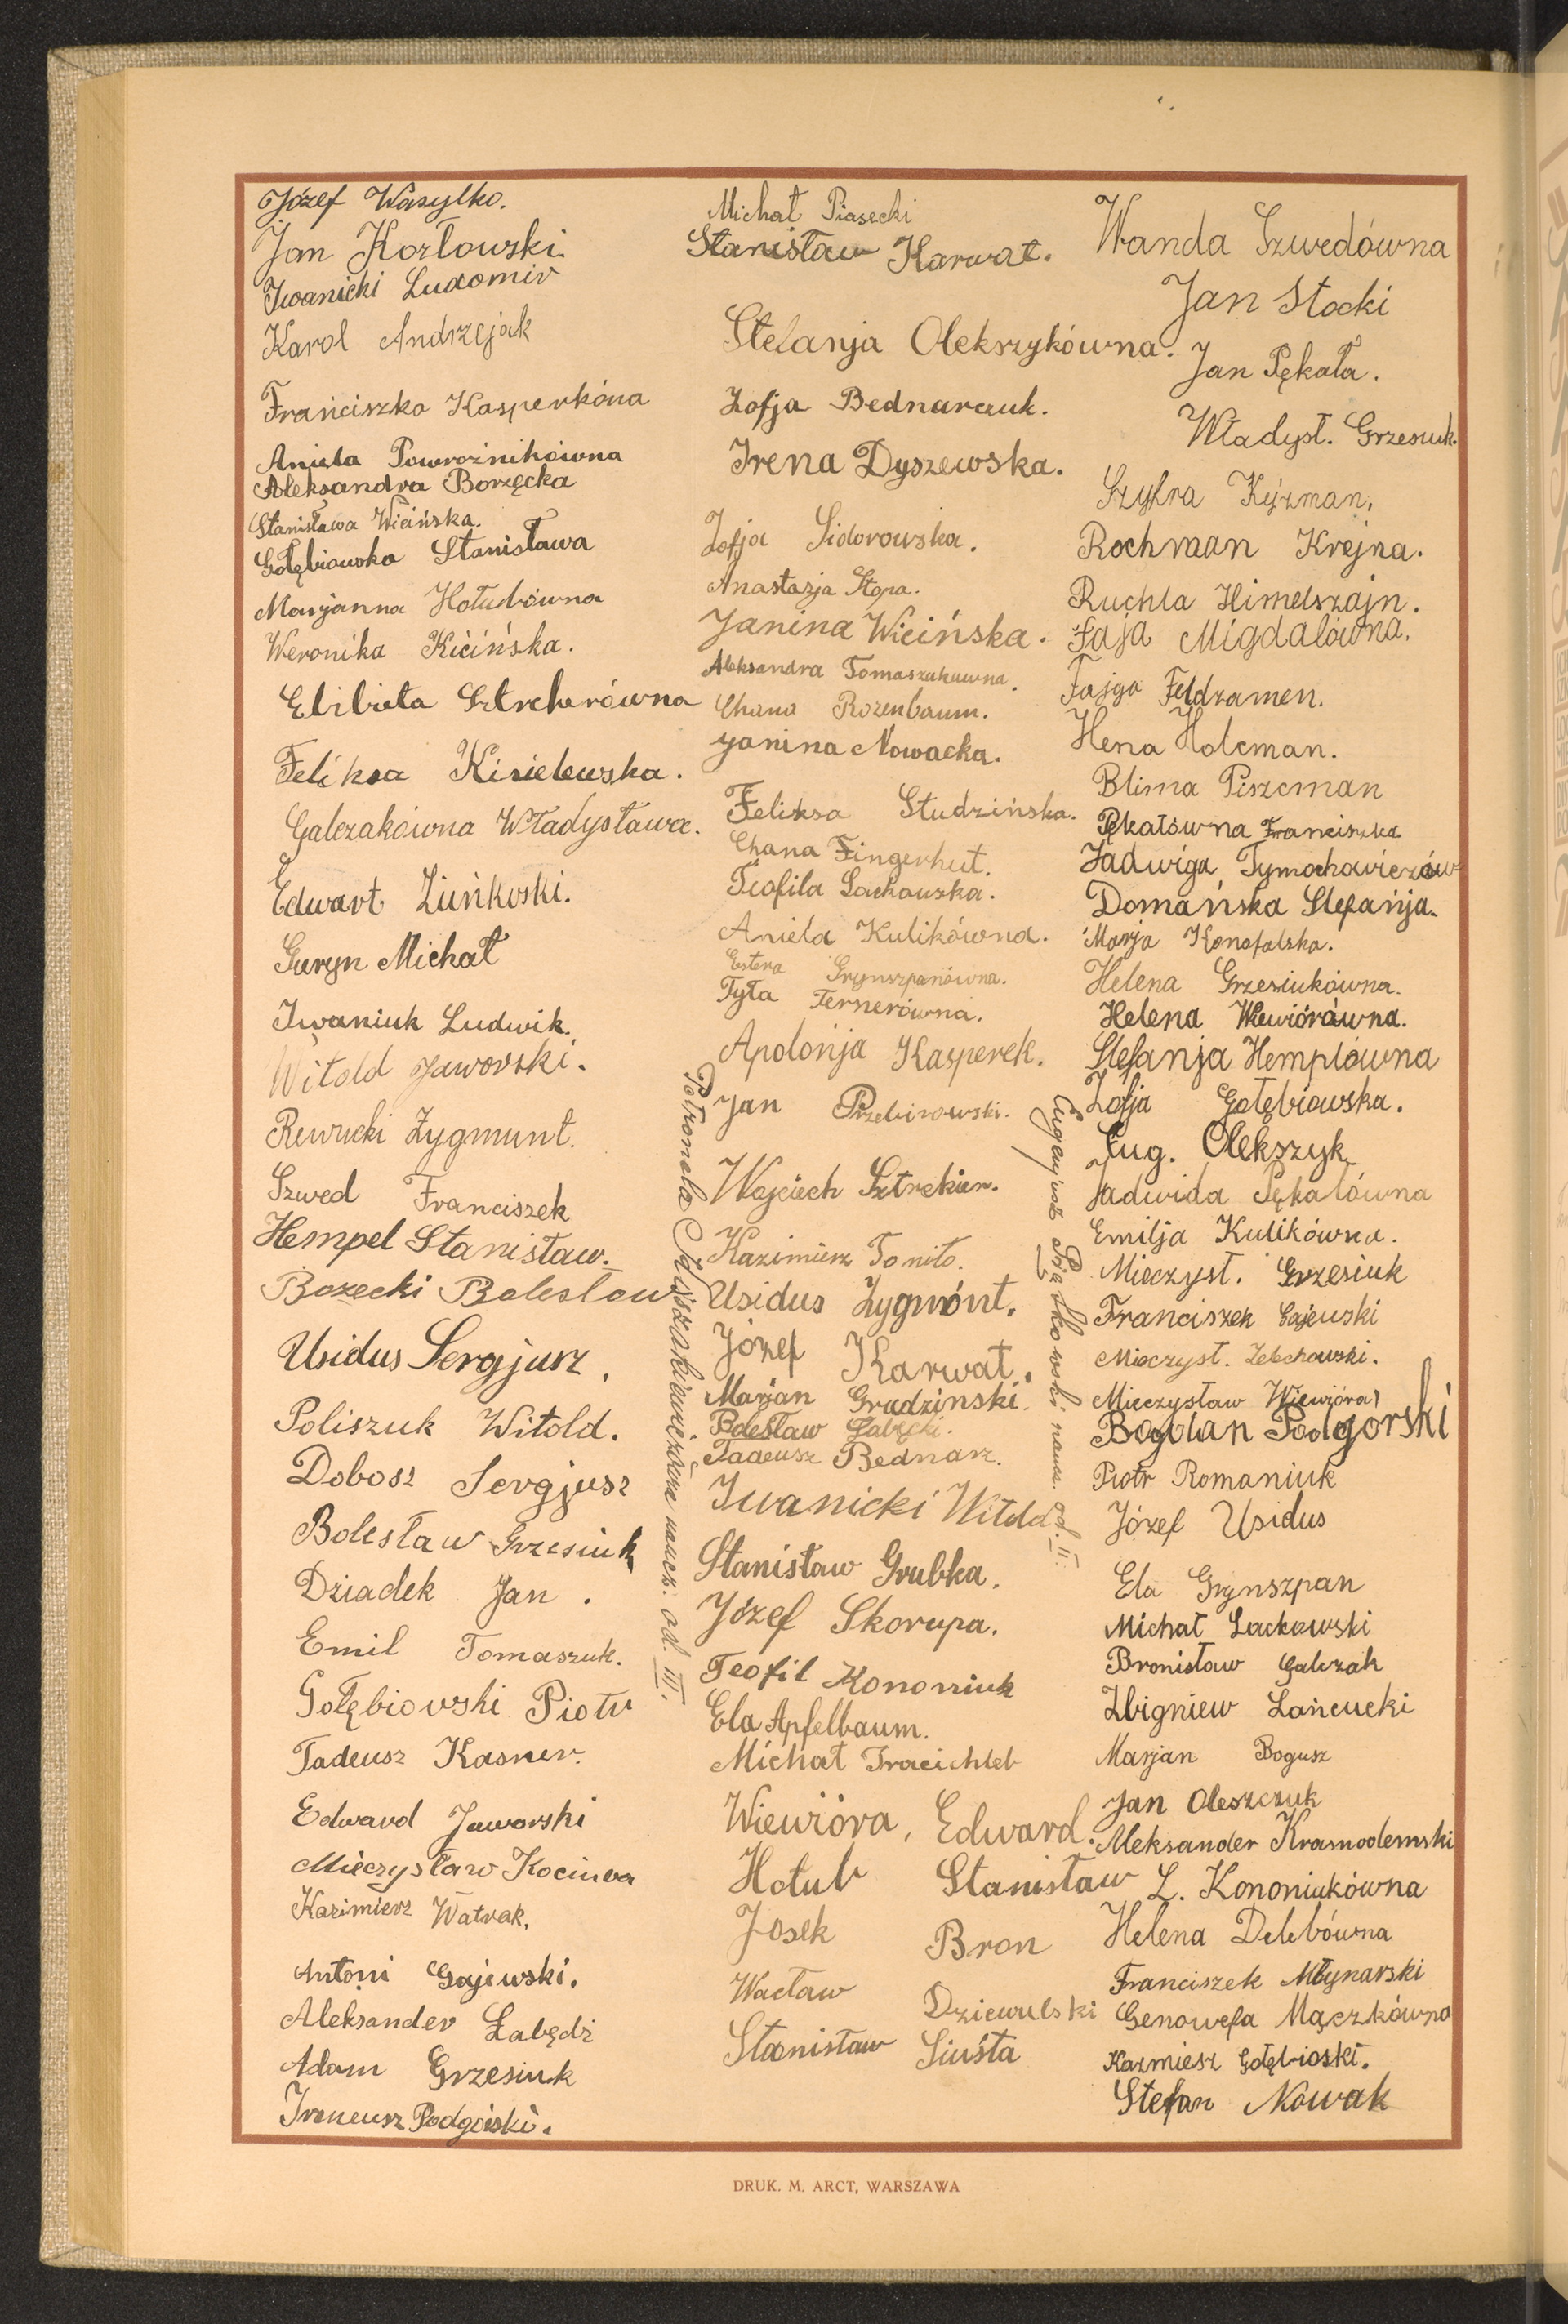 Józef Wasylko.
Jan Kozłowski.
Iwanicki Ludomir
Karol Andrzejak
Franciszka Kasperkóna
Aniela Powroźnikówna
Aleksandra Borzęcka
Stanisława Wicińska.
Gołębiowska Stanisława
Marjanna Hołubówna
Weronika Kicińska.
Elibieta Sztrcherówna
Feliksa Kisielewska.
Galczakówna Władysława.
Edwart Zieńkoski.
Guryn Michał
Iwaniuk Ludwik.
Witold Jaworski.
Rewucki Zygmunt.
Szwed Franciszek
Hempel Stanisław.
Bozecki Boleslaw
Usidus Sergjusz.
Poliszuk Witold.
Dobosz Sergjusz
Bolesław Grzesiuk
Dziadek Jan.
Emil Tomaszuk.
Gołębiovski Piotr
Tadeusz Kasner.
Edward Jaworski
Mieczysław Kociuba
Kazimierz Watrak.
Antoni Gajewski.
Aleksander Łabędź
Adam Grzesiuk
Ireneusz Podgórski.
Petronela naucz. od. III.
Michał Piasecki
Stanisław Karwat.
Stefanja Olekszykówna.
Zofja Bednarczuk.
Irena Dyszewska.
Zofja Sidorowska.
Anastazja Stopa.
Janina Wicińska.
Aleksandra Tomaszukuwna.
Chana Rozenbaum.
Janina Nowacka.
Feliksa Studzińska.
Chana Fingerhut.
Teofila Lackowska.
Aniela Kulikówna.
Estera Grynszpanówna.
Tyła Fersnerówna.
Apolonja Kasperek.
Jan Przebirowski.
Wojciech Sztrekier.
Kazimierz Toniło.
Usidus Zygmónt.
Józef Karwat.
Marjan Grudzinski.
Bolesław Gałęcki.
Tadeusz Bednarz.
Iwanicki Witold
Stanisław Grubka.
Józef Skorupa.
Teofil Kononiuk
Ela Apfelbaum.
Michał Tracichleb
Wiewióra, Edward.
Hołub Stanisław
Josek Bron
Wacław Dziewulski
Stanisław Siusta
Eugenjusz Piątkowski naucz. od. II.
Wanda Szwedówna
Jan Stocki
Jan Pękała.
Władysł. Grzesiuk.
Szyfra Kejzman.
Rochman Krejna.
Ruchla Himelszajn.
Faja Migdalówna.
Fajga Feldzamen.
Hena Holcman.
Blima Piszcman
Pękałówna Franciszka
Jadwiga Tymochowiczów
Domańska Stefanja.
Marja Konofalska.
Helena Grzesiukówna.
Helena Wiewiórówna.
Stefanja Hemplówna
Zofja Gołębiowska.
Eug. Olekszyk
Jadwida Pękalówna
Emilja Kulikówna.
Mieczysł. Grzesiuk
Franciszek Gajewski
Mieczysł. Zelechowski.
Mieczysław Wiewióra
Bogdan Podgorski
Piotr Romaniuk
Józef Usidus
Ela Grynszpan
Michał Lackowski
Bronisław Galczak
Zbigniew Łańcucki
Marjan Bogusz
Jan Oleszczuk
Aleksander Krasnodemski
L. Kononiukówna
Helena Delebówna
Franciszek Młynarski
Genowefa Mączkówna
Kazmiesz Gołębioski.
Stefan Nowak
DRUK. M. ARCT, WARSZAWA